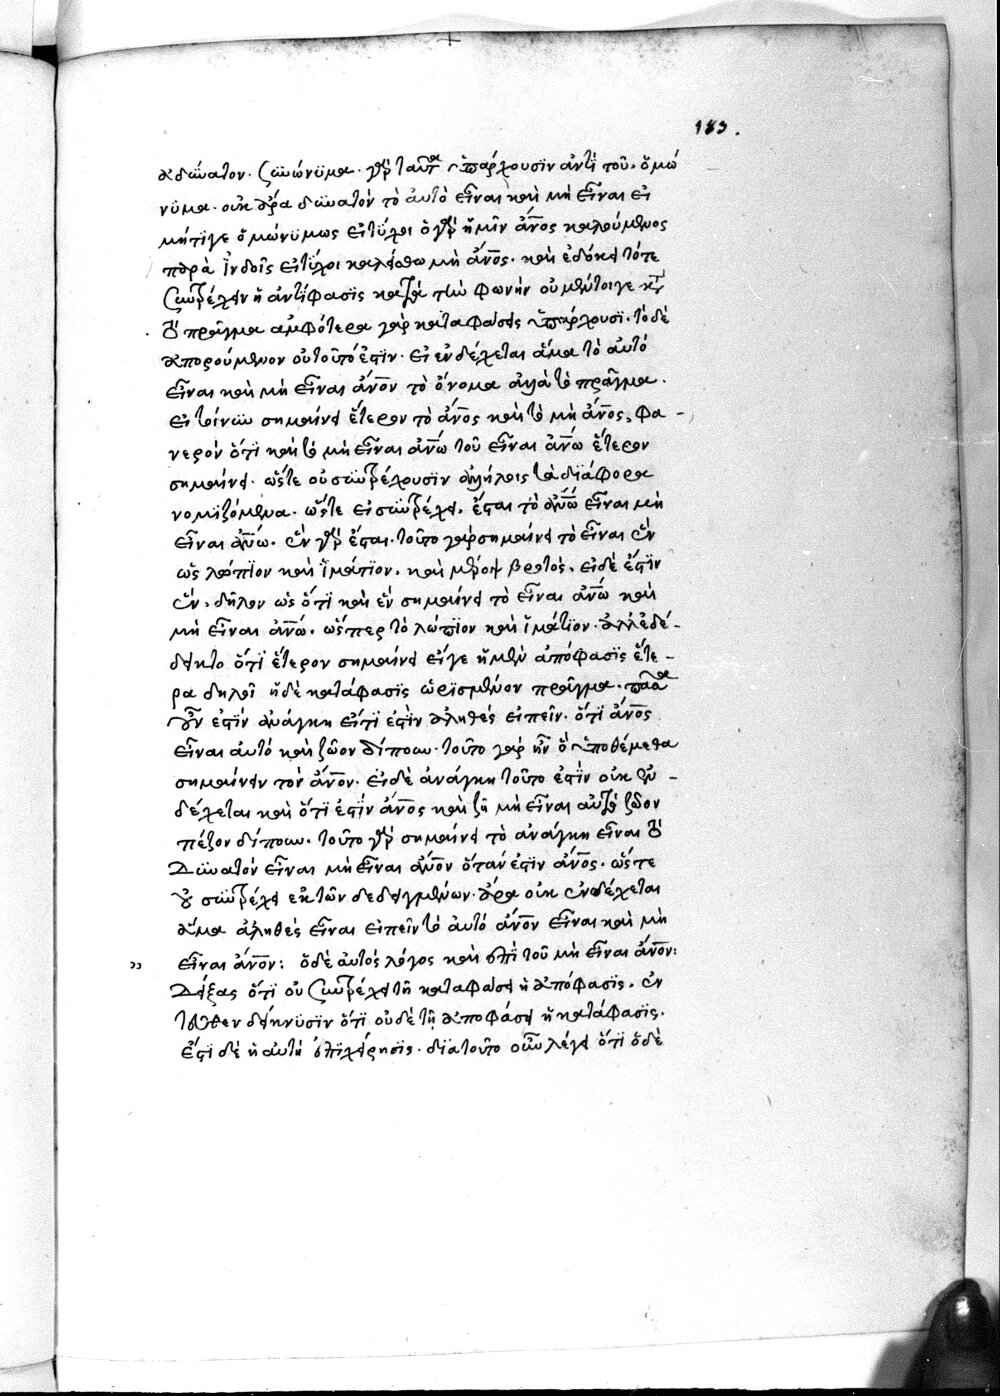 183.
ἀδύνατον· συνώνυμα γὰρ ταῦτα ὑπάρχουσιν ἀντὶ τοῦ ὁμώ
νυμα· οὐκ ἄρα δυνατὸν τὸ αὐτὸ εἶναι καὶ μὴ εἶναι εἰ
μήτιγε ὁμωνύμως εἰ τύχοι ὁ γὰρ ἡμῖν ἄνος καλούμενος
παρὰ ἰνδοῖς εἰ τύχοι καλείσθω μὴ ἄνος· καὶ ἐδόκει τότε
συντρέχειν ἡ ἀντίφασις κατὰ τὴν φωνὴν οὐ μέντοιγε κατὰ
τὸ πρᾶγμα ἀμφότερα γὰρ καταφάσεις ὑπάρχουσι· τὸ δὲ
ἀπορούμενον οὐ τοῦτό ἐστιν· εἰ ἐνδέχεται ἅμα τὸ αὐτὸ
εἶναι καὶ μὴ εἶναι ἄνον τὸ ὄνομα ἀλλὰ τὸ πρᾶγμα·
εἰ τοίνυν σημαίνει ἕτερον τὸ ἄνος καὶ τὸ μὴ ἄνος, φα-
νερὸν ὅτι καὶ τὸ μὴ εἶναι ἀνω τοῦ εἶναι ἀνω ἕτερον
σημαίνει· ὥστε οὐ συντρέχουσιν ἀλλήλοις τὰ διάφορα
νομιζόμενα· ὥστε εἰ συντρέχει, ἔσται τὸ ἀνω εἶναι μὴ
εἶναι ἀνω· ἓν γὰρ ἔσται· τοῦτο γὰρ σημαίνει τὸ εἶναι ἓν
ὡς λώπιον καὶ ἱμάτιον, καὶ μέροψ βροτός· εἰ δὲ ἔστιν
ἓν, δῆλον ὡς ὅτι καὶ ἓν σημαίνει τὸ εἶναι ἀνω καὶ
μὴ εἶναι ἀνω· ὥσπερ τὸ λώπιον καὶ ἱμάτιον· ἀλλ' ἐδέ-
δεικτο ὅτι ἕτερον σημαίνει εἴγε ἡ μὲν ἀπόφασις ἕτε-
ρα δηλοῖ ἡ δὲ κατάφασις ὡρισμένον πρᾶγμα· πάλιν
οὖν ἐστὶν ἀνάγκη εἴ τι ἐστὶν ἀληθὲς εἰπεῖν· ὅτι ἄνος
εἶναι αὐτὸ καὶ ζῶον δίπουν· τοῦτο γὰρ ἦν ὃ ὑποθέμεθα
σημαίνειν τὸν ἄνον· εἰ δὲ ἀνάγκη τοῦτο ἐστὶν οὐκ ἐν-
δέχεται καὶ ὅτι ἐστὶν ἄνος καὶ ζῆ μὴ εἶναι αὐτὸ ζῶον
πέζον δίπουν· τοῦτο γὰρ σημαίνει τὸ ἀνάγκη εἶναι τὸ
ἀδύνατον εἶναι μὴ εἶναι ἄνον ὅταν ἐστὶν ἄνος· ὥστε
οὐ συντρέχει ἐκ τῶν δεδειγμένων· ἄρα οὐκ ἐνδέχεται
ἅμα ἀληθὲς εἶναι εἰπεῖν τὸ αὐτὸ ἄνον εἶναι καὶ μὴ
εἶναι ἄνον: ὁ δὲ αὐτὸς λόγος καὶ ἐπὶ τοῦ μὴ εἶναι ἄνον:
Δείξας ὅτι οὐ συντρέχει τῇ καταφάσει ἡ ἀπόφασις, ἐν
τεῦθεν δείκνυσιν ὅτι οὐδὲ τῇ ἀποφάσει ἡ κατάφασις·
ἔστι δὲ ἡ αὐτὴ ἐπιχείρησις· διὰ τοῦτο οὖν λέγει ὅτι ὁ δὲ